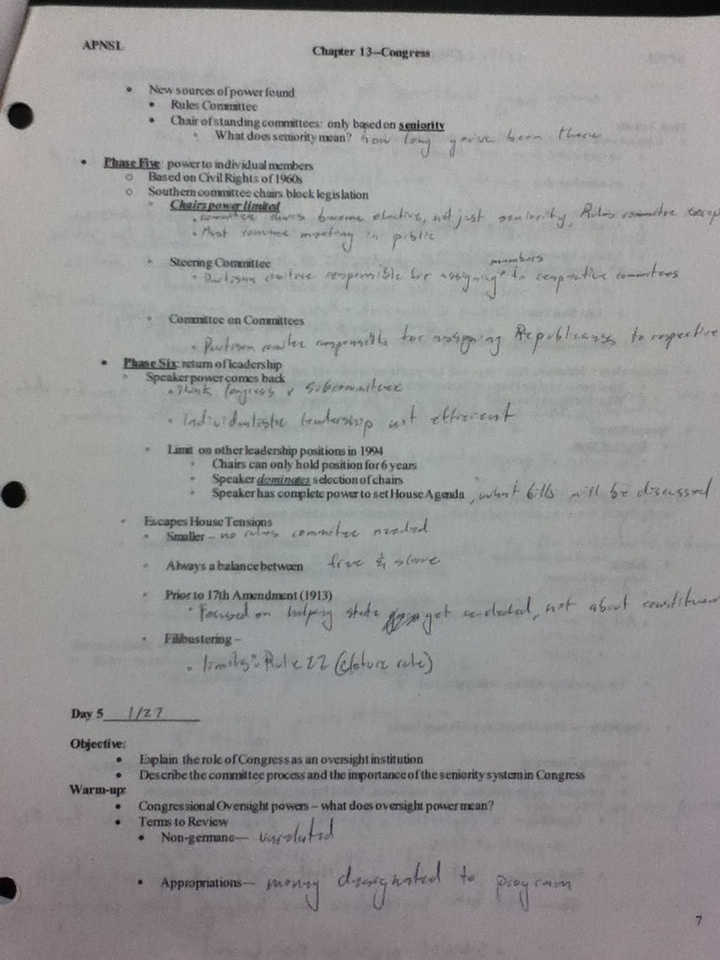 APNSL
Chapter 13–Congress
• New sources of power found
• Rules Committee
• Chair of standing committees: only based on seniority
◦ What does seniority mean? how long you've been there
• Phase Five: power to individual members
o Based on Civil Rights of 1960s
o Southern committee chairs block legislation
▪ Chairs power limited
• committee chairs become elective, not just seniority, Rules committee
• Must convene meeting in public
▪ Steering Committee
members
• Partisan responsible for assigning ^ to respective committees
▪ Committee on Committees
• Partisan responsible for assigning Republicans to respective
• Phase Six: return of leadership
◦ Speaker power comes back
• Think Congress & subcommittee
• Individualistic leadership not efficient
▪ Limit on other leadership positions in 1994
▪ Chairs can only hold position for 6 years
▪ Speaker dominates selection of chairs
▪ Speaker has complete power to set House Agenda, what bills will be discussed
▪ Escapes House Tensions
▪ Smaller – no rules committee needed
▪ Always a balance between free & slave
▪ Prior to 17th Amendment (1913)
• Focused on helping state get, not about
▪ Filibustering –
• limits: Rule 22 (cloture rule)
Day 5 1/27
Objective:
• Explain the role of Congress as an oversight institution
• Describe the committee process and the importance of the seniority system in Congress
Warm-up:
• Congressional Oversight powers – what does oversight power mean?
• Terms to Review
• Non-germane— unrelated
• Appropriations— money designated to program
7